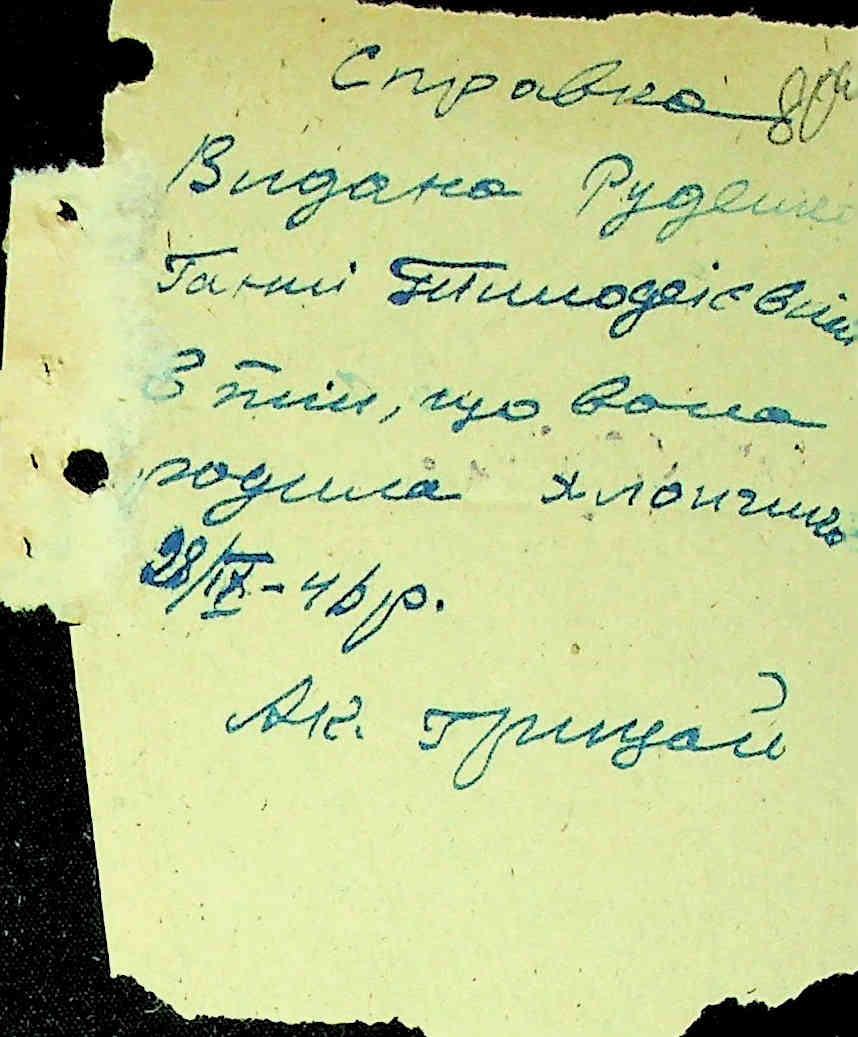 Справка
Видана Руденко
Ганні Тимофеієвній
В тім, що вона
родила хлопчика
28/IX-46р.
Ак. Грицай